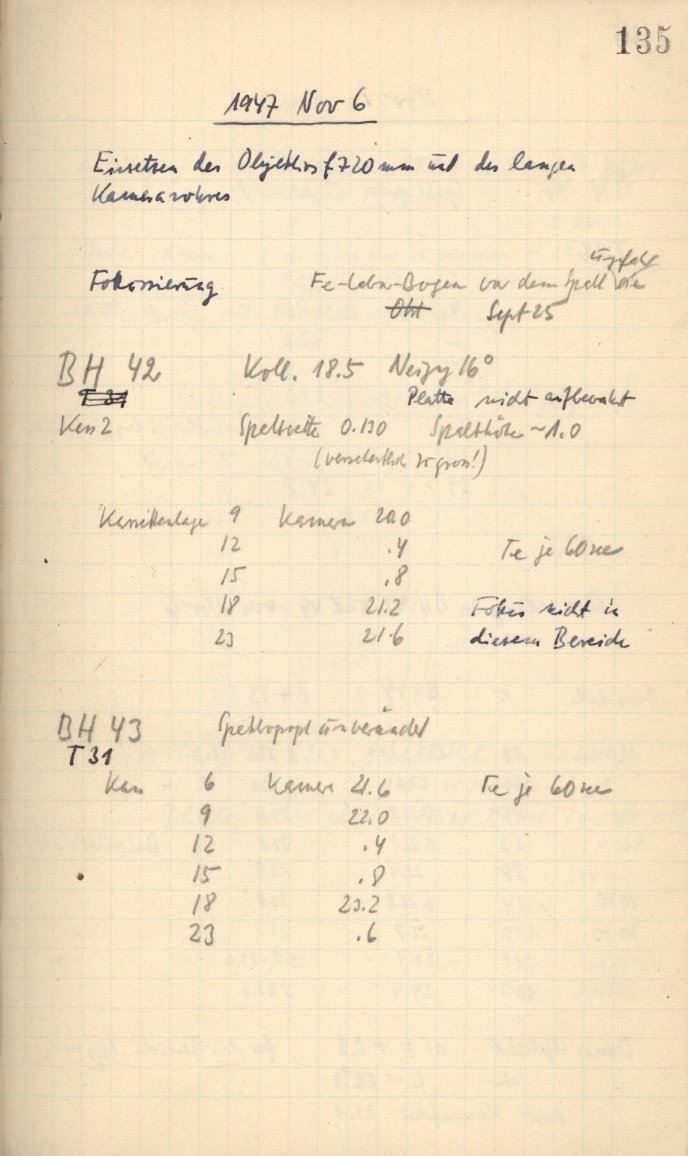 135
1947 Nov 6
Einsetzen des Objektivs f720mm und des langen
Kamerarohres
ungefähr
Fokussierung Fe-Labor-Bogen vor dem Spalt wie
Sept 25
BH 42 Koll. 18.5 Neigg 16°
T 31 Platte nicht aufbewahrt
Kass 2 Spaltweite 0.130 Spalthöhe ~1.0
(versehentlich zu gross!)
Kassettenlage 9 Kamera 20.0
12 .4 Fe je 60 sec
15 .8
18 21.2 Fokus nicht in
23 21.6 diesem Bereich
BH 43 unverändert
T 31
Kass 6 Kamera 21.6 Fe je 60 sec
9 22.0
12 .4
15 .8
18 23.2
23 .6